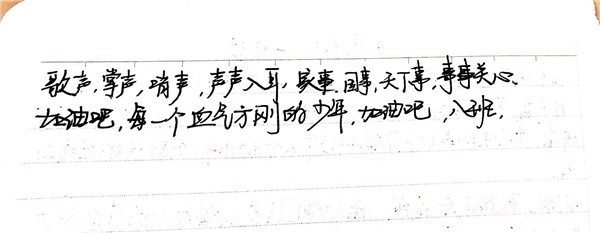 歌声,掌声,哨声,声声入耳,家事,国事,天下事,事事关心.
加油吧,每一个血气方刚的少年,加油吧,八班.